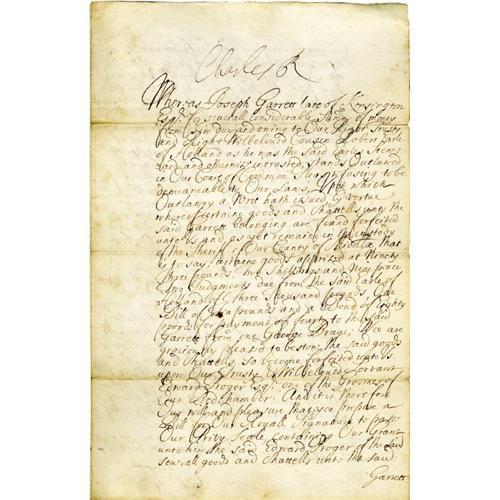 Charles R
Whereas Joseph Garrett late of Kensington
Esqr for severall considerable Sums of money
from him due and owing to Our Right Trusty
and Right Welbeloved Cousen Robert Earle
of Holland as he was the said Earles
and otherwise intrusted, stands Outlawed
in Our Court of Common Pleas refusing to be
demeanable to Our Laws, Upon which
Outlawry a Writ hath issued by vertue
whereof certaine goods and Chattells unto the
said Garrett belonging are found forfeited
unto us and as yet remaine in the custody
of the Sheriff of Our County of Middx That
is to say, certaine goods apprized at Ninety
three pounds, two Shillings and Nine pence
two Judgments due from the said Earle of
Holland of three thousand pounds, One
Bill of Ten pounds and a Bond of Eighty
pounds for payment of fourty to the said
Garrett from one George Wee are
graciously pleas'd to bestow the said goods
and Chattells so become forfeited unto us
upon Our Trusty & Welbeloved Servant
Edward Proger Esqr one of the Groomes of
Our Bedchamber. And it is therefore
Our will and pleasure that you prepare a
Bill for Our Royall Signature to passe
Our Privy Seale containing Our Grant
unto him the said Edward Proger of the said
severall goods and Chattells unto the said
Garrett